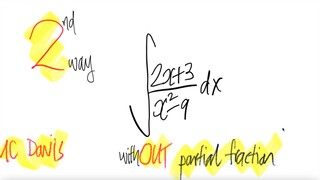 2nd way
∫ 2x+3 / x²-9 dx
UC Davis
withOUT partial fraction.